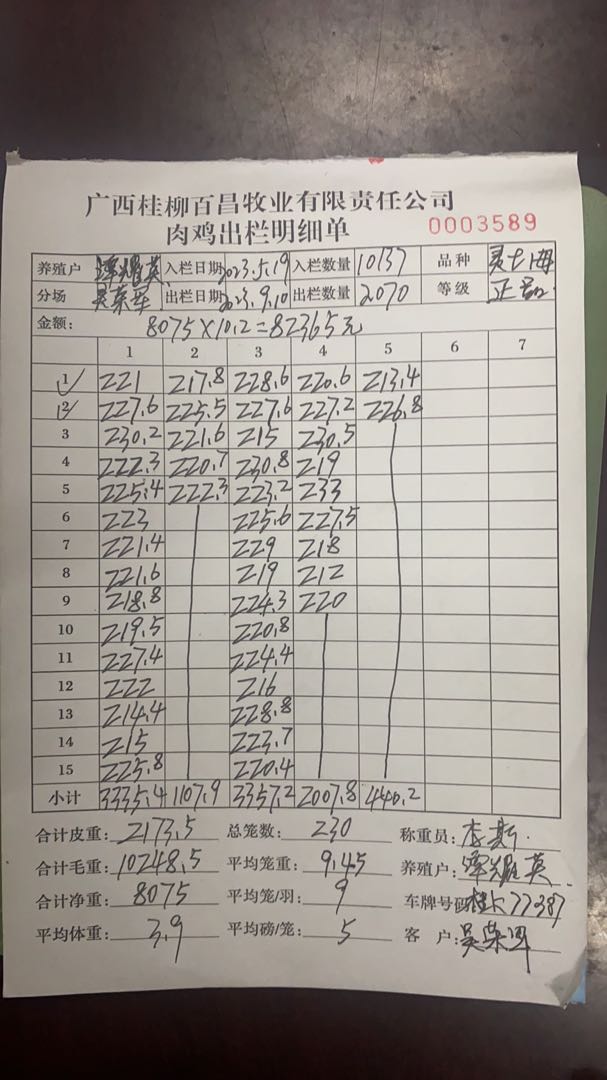 广西桂柳百昌牧业有限责任公司
肉鸡出栏明细单 0003589
养殖户 谭耀英 入栏日期 2023.5.19 入栏数量 10137 品种
分场 吴荣军 出栏日期 2023.9.10 出栏数量 2070 等级 正品
金额: 8075×10.2=82365元
1 2 3 4 5 6 7
1 221 217.8 228.6 220.6 213.4
2 227.6 225.5 227.6 227.2 226.8
3 230.2 221.6 215 230.5
4 222.3 220.7 230.8 219
5 225.4 222.3 223.2 233
6 223 225.6 227.5
7 221.4 229 218
8 221.6 219 212
9 218.8 224.3 220
10 219.5 220.8
11 227.4 224.4
12 222 216
13 214.4 228.8
14 215 223.7
15 225.8 220.4
小计 3335.4 1107.9 3357.2 2007.8 440.2
合计皮重: 2173.5 总笼数: 230 称重员: 李斯
合计毛重: 10248.5 平均笼重: 9.45 养殖户: 谭耀英
合计净重: 8075 平均笼/羽: 9 车牌号码 77387
平均体重: 3.9 平均磅/笼: 5 客户: 吴荣军